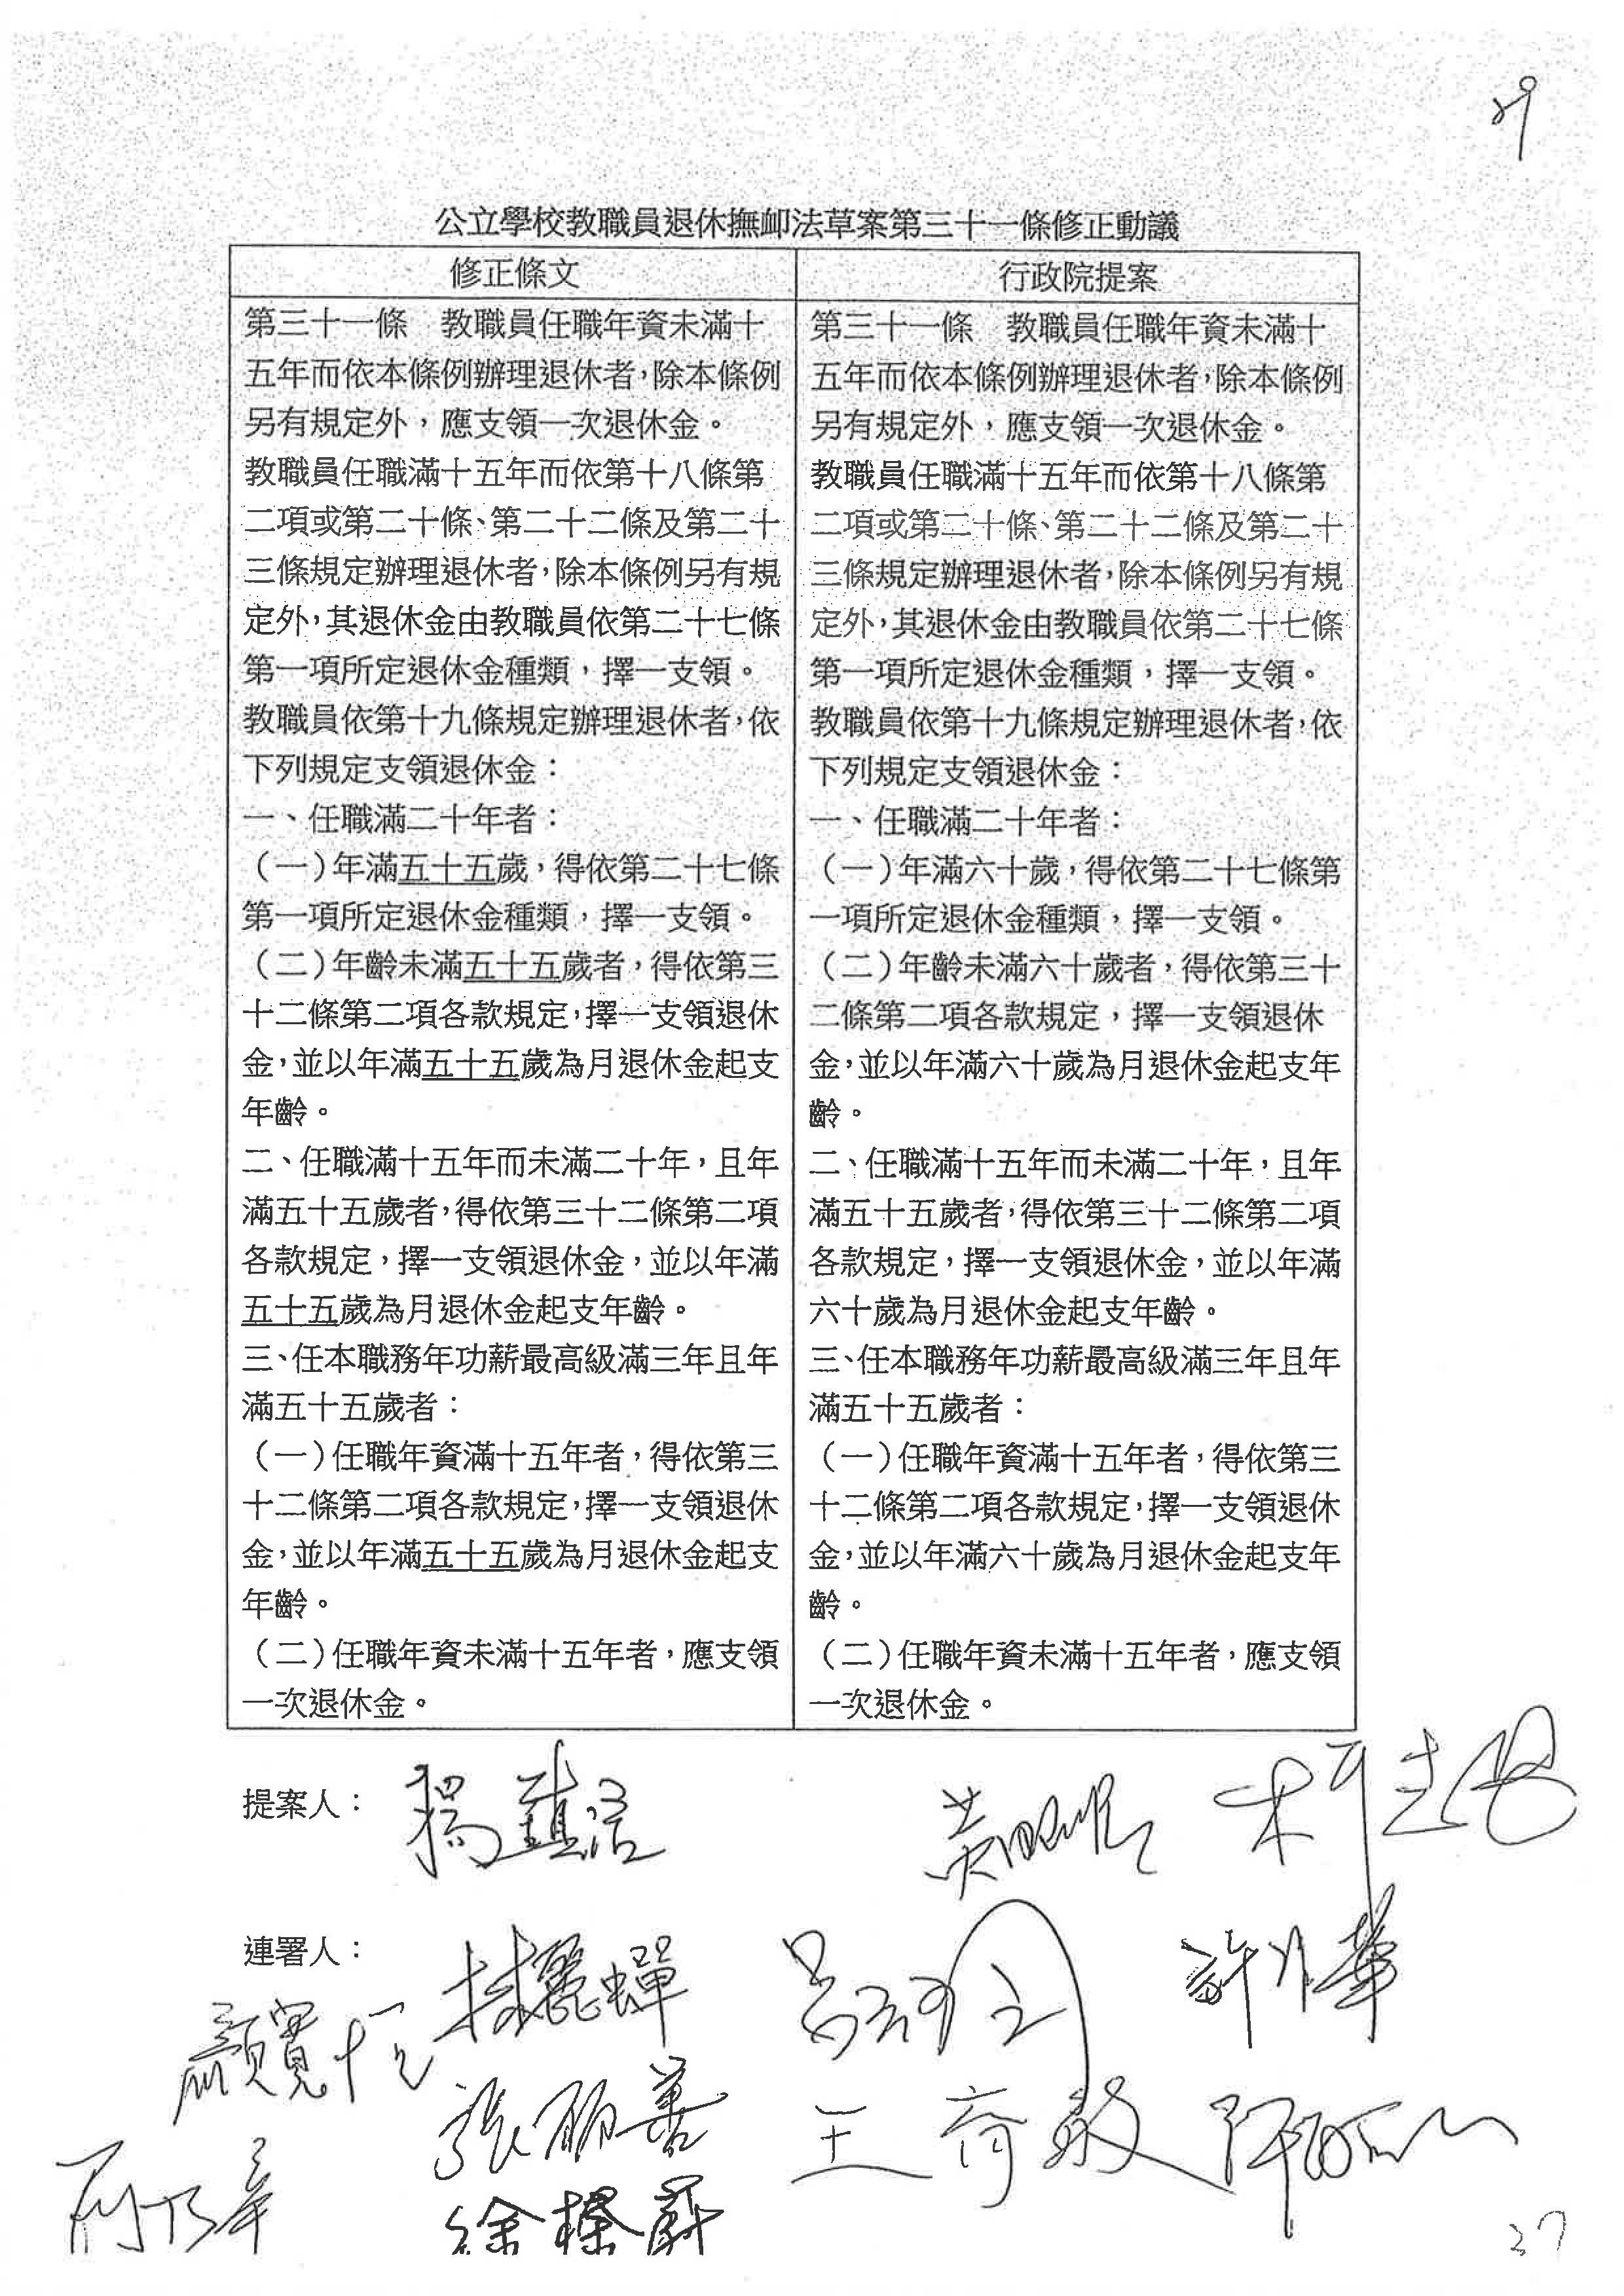 公立學校教職員退休撫卹法草案第三十一條修正動議
修正條文
第三十一條　教職員任職年資未滿十
五年而依本條例辦理退休者，除本條例
另有規定外，應支領一次退休金。
教職員任職滿十五年而依第十八條第
二項或第二十條、第二十二條及第二十
三條規定辦理退休者，除本條例另有規
定外，其退休金由教職員依第二十七條
第一項所定退休金種類，擇一支領。
教職員依第十九條規定辦理退休者，依
下列規定支領退休金：
一、任職滿二十年者：
（一）年滿五十五歲，得依第二十七條
第一項所定退休金種類，擇一支領。
（二）年齡未滿五十五歲者，得依第三
十二條第二項各款規定，擇一支領退休
金，並以年滿五十五歲為月退休金起支
年齡。
二、任職滿十五年而未滿二十年，且年
滿五十五歲者，得依第三十二條第二項
各款規定，擇一支領退休金，並以年滿
五十五歲為月退休金起支年齡。
三、任本職務年功薪最高級滿三年且年
滿五十五歲者：
（一）任職年資滿十五年者，得依第三
十二條第二項各款規定，擇一支領退休
金，並以年滿五十五歲為月退休金起支
年齡。
（二）任職年資未滿十五年者，應支領
一次退休金。
行政院提案
第三十一條　教職員任職年資未滿十
五年而依本條例辦理退休者，除本條例
另有規定外，應支領一次退休金。
教職員任職滿十五年而依第十八條第
二項或第二十條、第二十二條及第二十
三條規定辦理退休者，除本條例另有規
定外，其退休金由教職員依第二十七條
第一項所定退休金種類，擇一支領。
教職員依第十九條規定辦理退休者，依
下列規定支領退休金：
一、任職滿二十年者：
（一）年滿六十歲，得依第二十七條第
一項所定退休金種類，擇一支領。
（二）年齡未滿六十歲者，得依第三十
二條第二項各款規定，擇一支領退休
金，並以年滿六十歲為月退休金起支年
齡。
二、任職滿十五年而未滿二十年，且年
滿五十五歲者，得依第三十二條第二項
各款規定，擇一支領退休金，並以年滿
六十歲為月退休金起支年齡。
三、任本職務年功薪最高級滿三年且年
滿五十五歲者：
（一）任職年資滿十五年者，得依第三
十二條第二項各款規定，擇一支領退休
金，並以年滿六十歲為月退休金起支年
齡。
（二）任職年資未滿十五年者，應支領
一次退休金。
提案人：楊鎮浯 黃昭順 柯志恩
連署人：林麗蟬 許淑華
顏寬恒
張麗善 王育敏
徐榛蔚
27